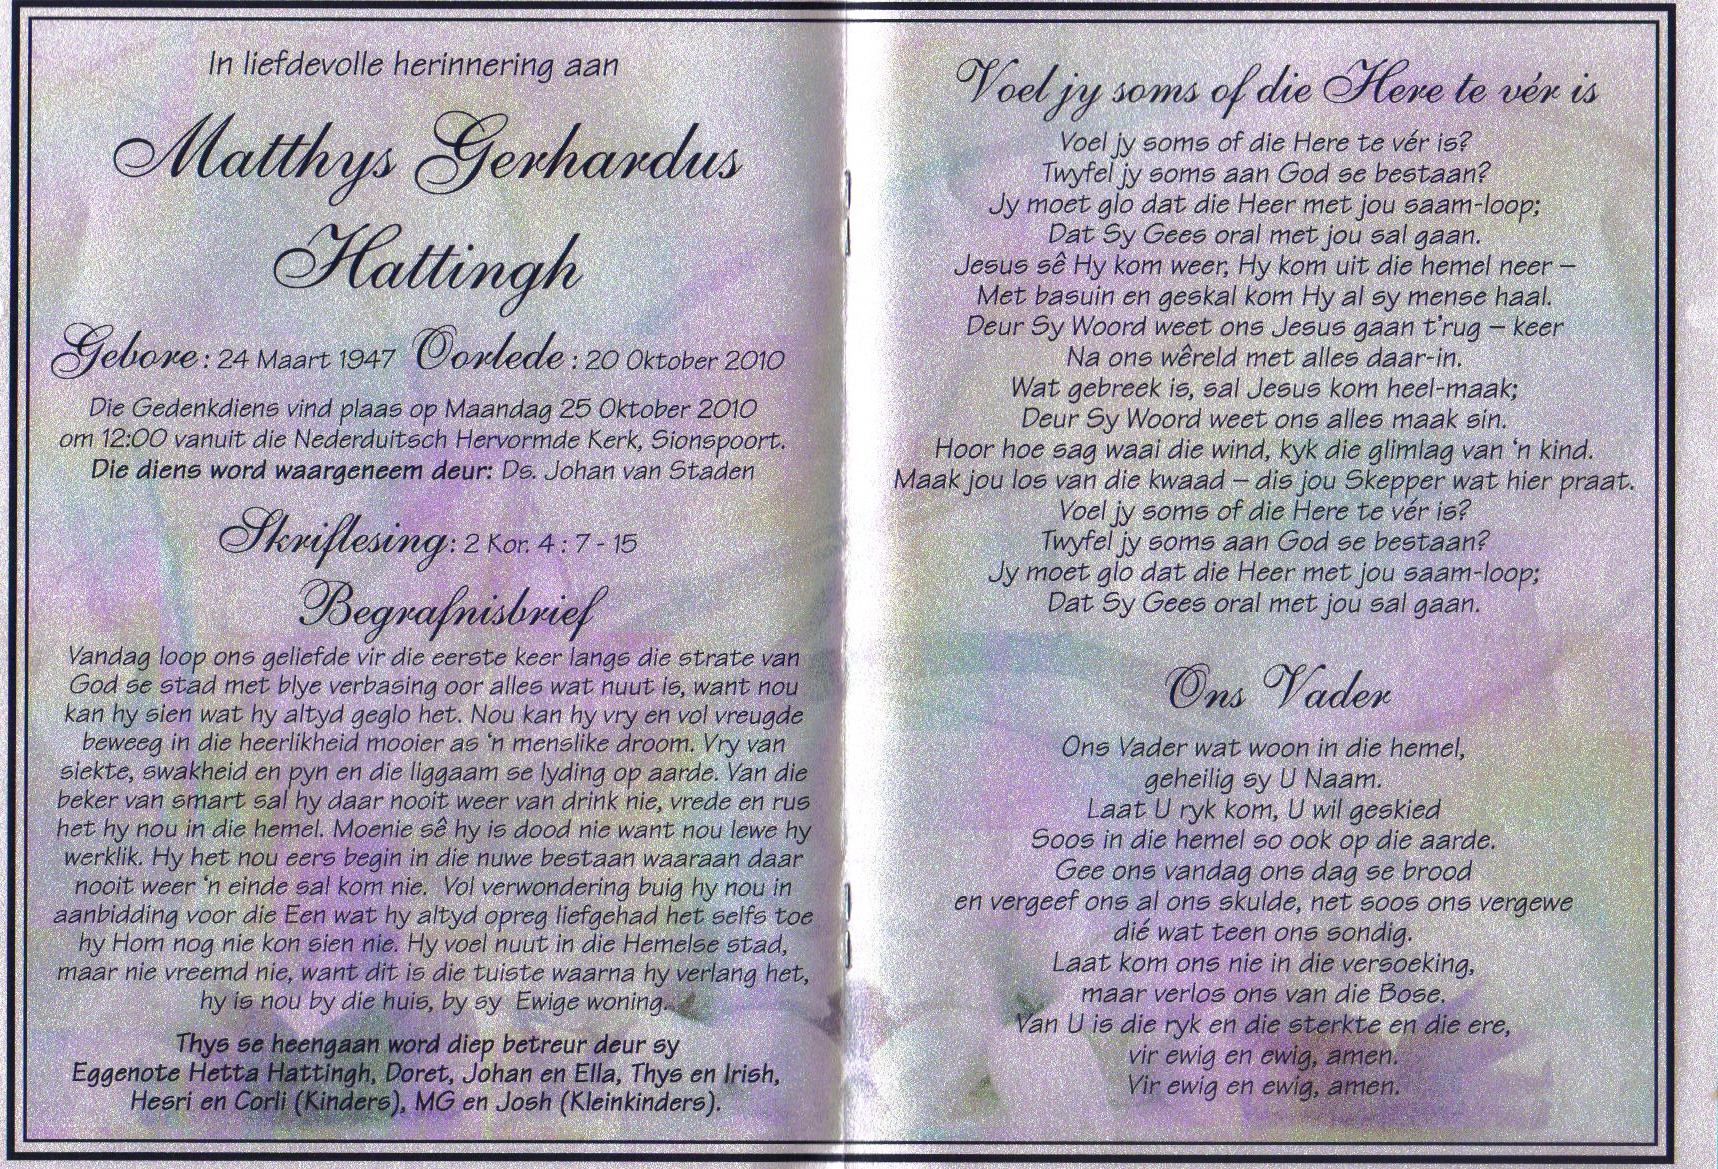 In liefdevolle herinnering aan
Matthys Gerhardus
Hattingh
Gebore : 24 Maart 1947 Oorlede : 20 Oktober 2010
Die Gedenkdiens vind plaas op Maandag 25 Oktober 2010
om 12:00 vanuit die Nederduitsch Hervormde Kerk, Sionspoort.
Die diens word waargeneem deur: Ds. Johan van Staden
Skriflesing: 2 Kor. 4 : 7 - 15
Begrafnisbrief
Vandag loop ons geliefde vir die eerste keer langs die strate van
God se stad met blye verbasing oor alles wat nuut is, want nou
kan hy sien wat hy altyd geglo het. Nou kan hy vry en vol vreugde
beweeg in die heerlikheid mooier as 'n menslike droom. Vry van
siekte, swakheid en pyn en die liggaam se lyding op aarde. Van die
beker van smart sal hy daar nooit weer van drink nie, vrede en rus
het hy nou in die hemel. Moenie sê hy is dood nie want nou lewe hy
werklik. Hy het nou eers begin in die nuwe bestaan waaraan daar
nooit weer 'n einde sal kom nie. Vol verwondering buig hy nou in
aanbidding voor die Een wat hy altyd opreg liefgehad het selfs toe
hy Hom nog nie kon sien nie. Hy voel nuut in die Hemelse stad,
maar nie vreemd nie, want dit is die tuiste waarna hy verlang het,
hy is nou by die huis, by sy Ewige woning.
Thys se heengaan word diep betreur deur sy
Eggenote Hetta Hattingh, Doret, Johan en Ella, Thys en Irish,
Hesri en Corli (Kinders), MG en Josh (Kleinkinders).
Voel jy soms of die Here te vér is
Voel jy soms of die Here te vér is?
Twyfel jy soms aan God se bestaan?
Jy moet glo dat die Heer met jou saam-loop;
Dat Sy Gees oral met jou sal gaan.
Jesus sê Hy kom weer, Hy kom uit die hemel neer –
Met basuin en geskal kom Hy al sy mense haal.
Deur Sy Woord weet ons Jesus gaan t'rug – keer
Na ons wêreld met alles daar-in.
Wat gebreek is, sal Jesus kom heel-maak;
Deur Sy Woord weet ons alles maak sin.
Hoor hoe sag waai die wind, kyk die glimlag van 'n kind.
Maak jou los van die kwaad – dis jou Skepper wat hier praat.
Voel jy soms of die Here te vér is?
Twyfel jy soms aan God se bestaan?
Jy moet glo dat die Heer met jou saam-loop;
Dat Sy Gees oral met jou sal gaan.
Ons Vader
Ons Vader wat woon in die hemel,
geheilig sy U Naam.
Laat U ryk kom, U wil geskied
Soos in die hemel so ook op die aarde.
Gee ons vandag ons dag se brood
en vergeef ons al ons skulde, net soos ons vergewe
dié wat teen ons sondig.
Laat kom ons nie in die versoeking,
maar verlos ons van die Bose.
Van U is die ryk en die sterkte en die ere,
vir ewig en ewig, amen.
Vir ewig en ewig, amen.